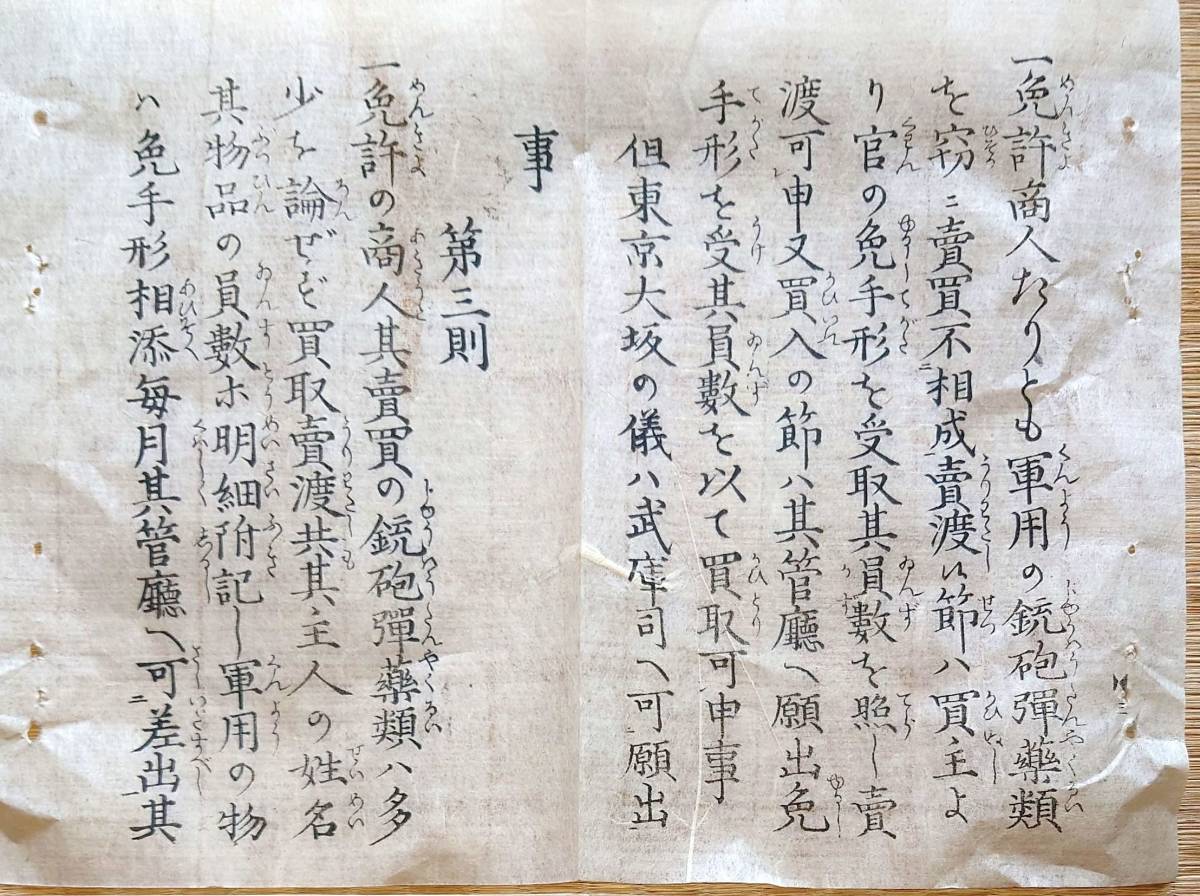 一免許商人たりとも軍用の銃砲彈藥類
を窃ニ賣買不相成賣渡候節ハ買主よ
り官の免手形を受取其員數を照し賣
渡可申又買入の節ハ其管廳へ願出免
手形を受其員數を以て買取可申事
但東京大坂の儀ハ武庫司へ可願出
事
第三則
一免許の商人其賣買の銃砲彈藥類ハ多
少を論ぜず買取賣渡共其主人の姓名
其物品の員數ホ明細附記し軍用の物
ハ免手形相添每月其管廳へ可差出其